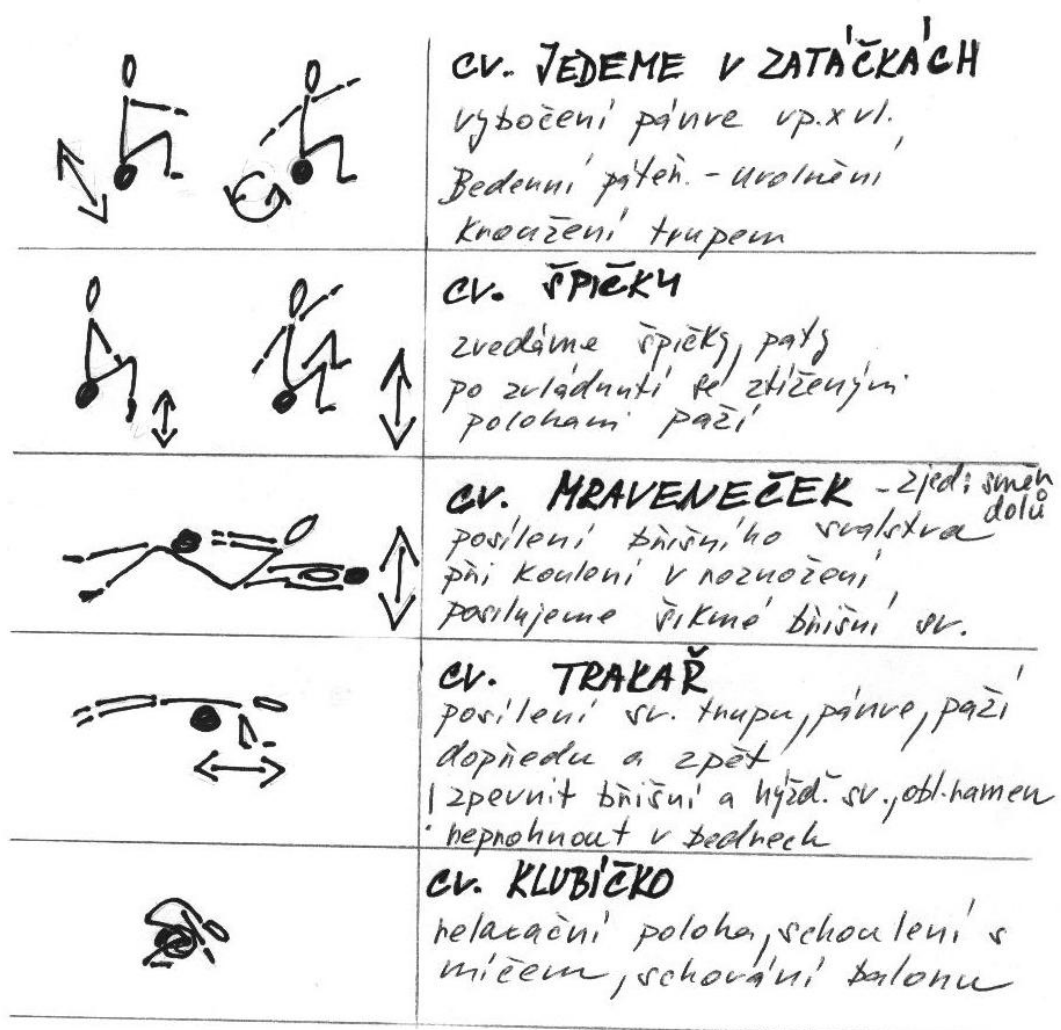 cv. JEDEME V ZATÁČKÁCH
vybočení pánve vp. x vl.
Bedenní páteň. - uvolnění
kroužení trupem
cv. ŠPIČKY
zvedáme špičky, paty
po zvládnutí se ztíženými
polohami paží
cv. MRAVENEČEK - zjed: směn
dolů
posílení břišního svalstva
při koulení v roznožení
posilujeme šikmé břišní sv.
cv. TRAKAŘ
posílení sv. trupu, pánve, paží
dopředu a zpět
! zpevnit břišní a hýžď. sv., obl. ramen
neprohnout v bedrech
cv. KLUBÍČKO
relaxační poloha, schoulení s
míčem, schování balonu